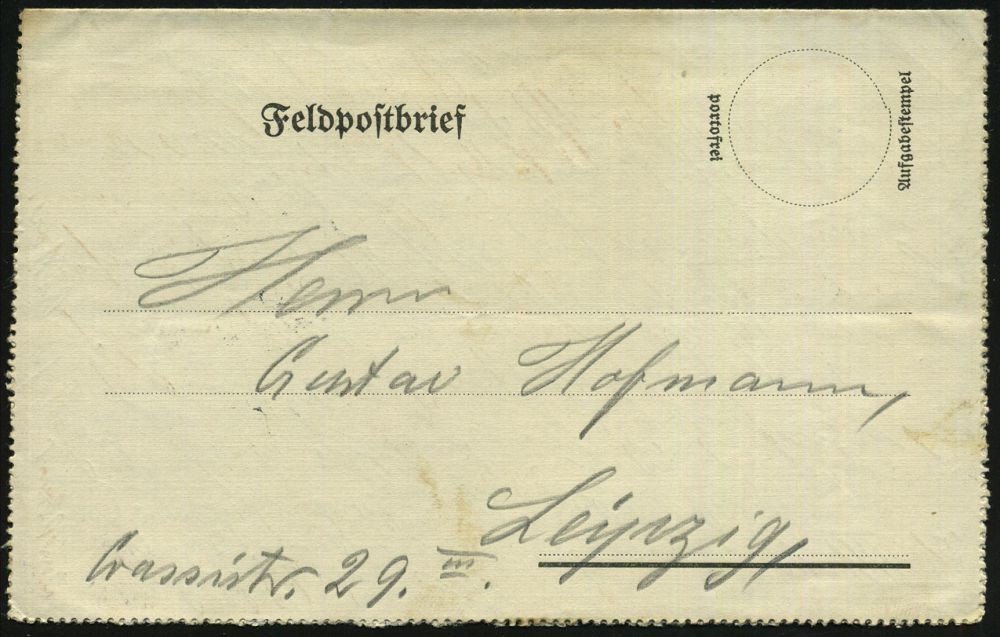 Feldpostbrief
portofrei
Aufgabestempel
Herrn
Gustav Hofmann,
Leipzig,
Crassistr. 29. III.